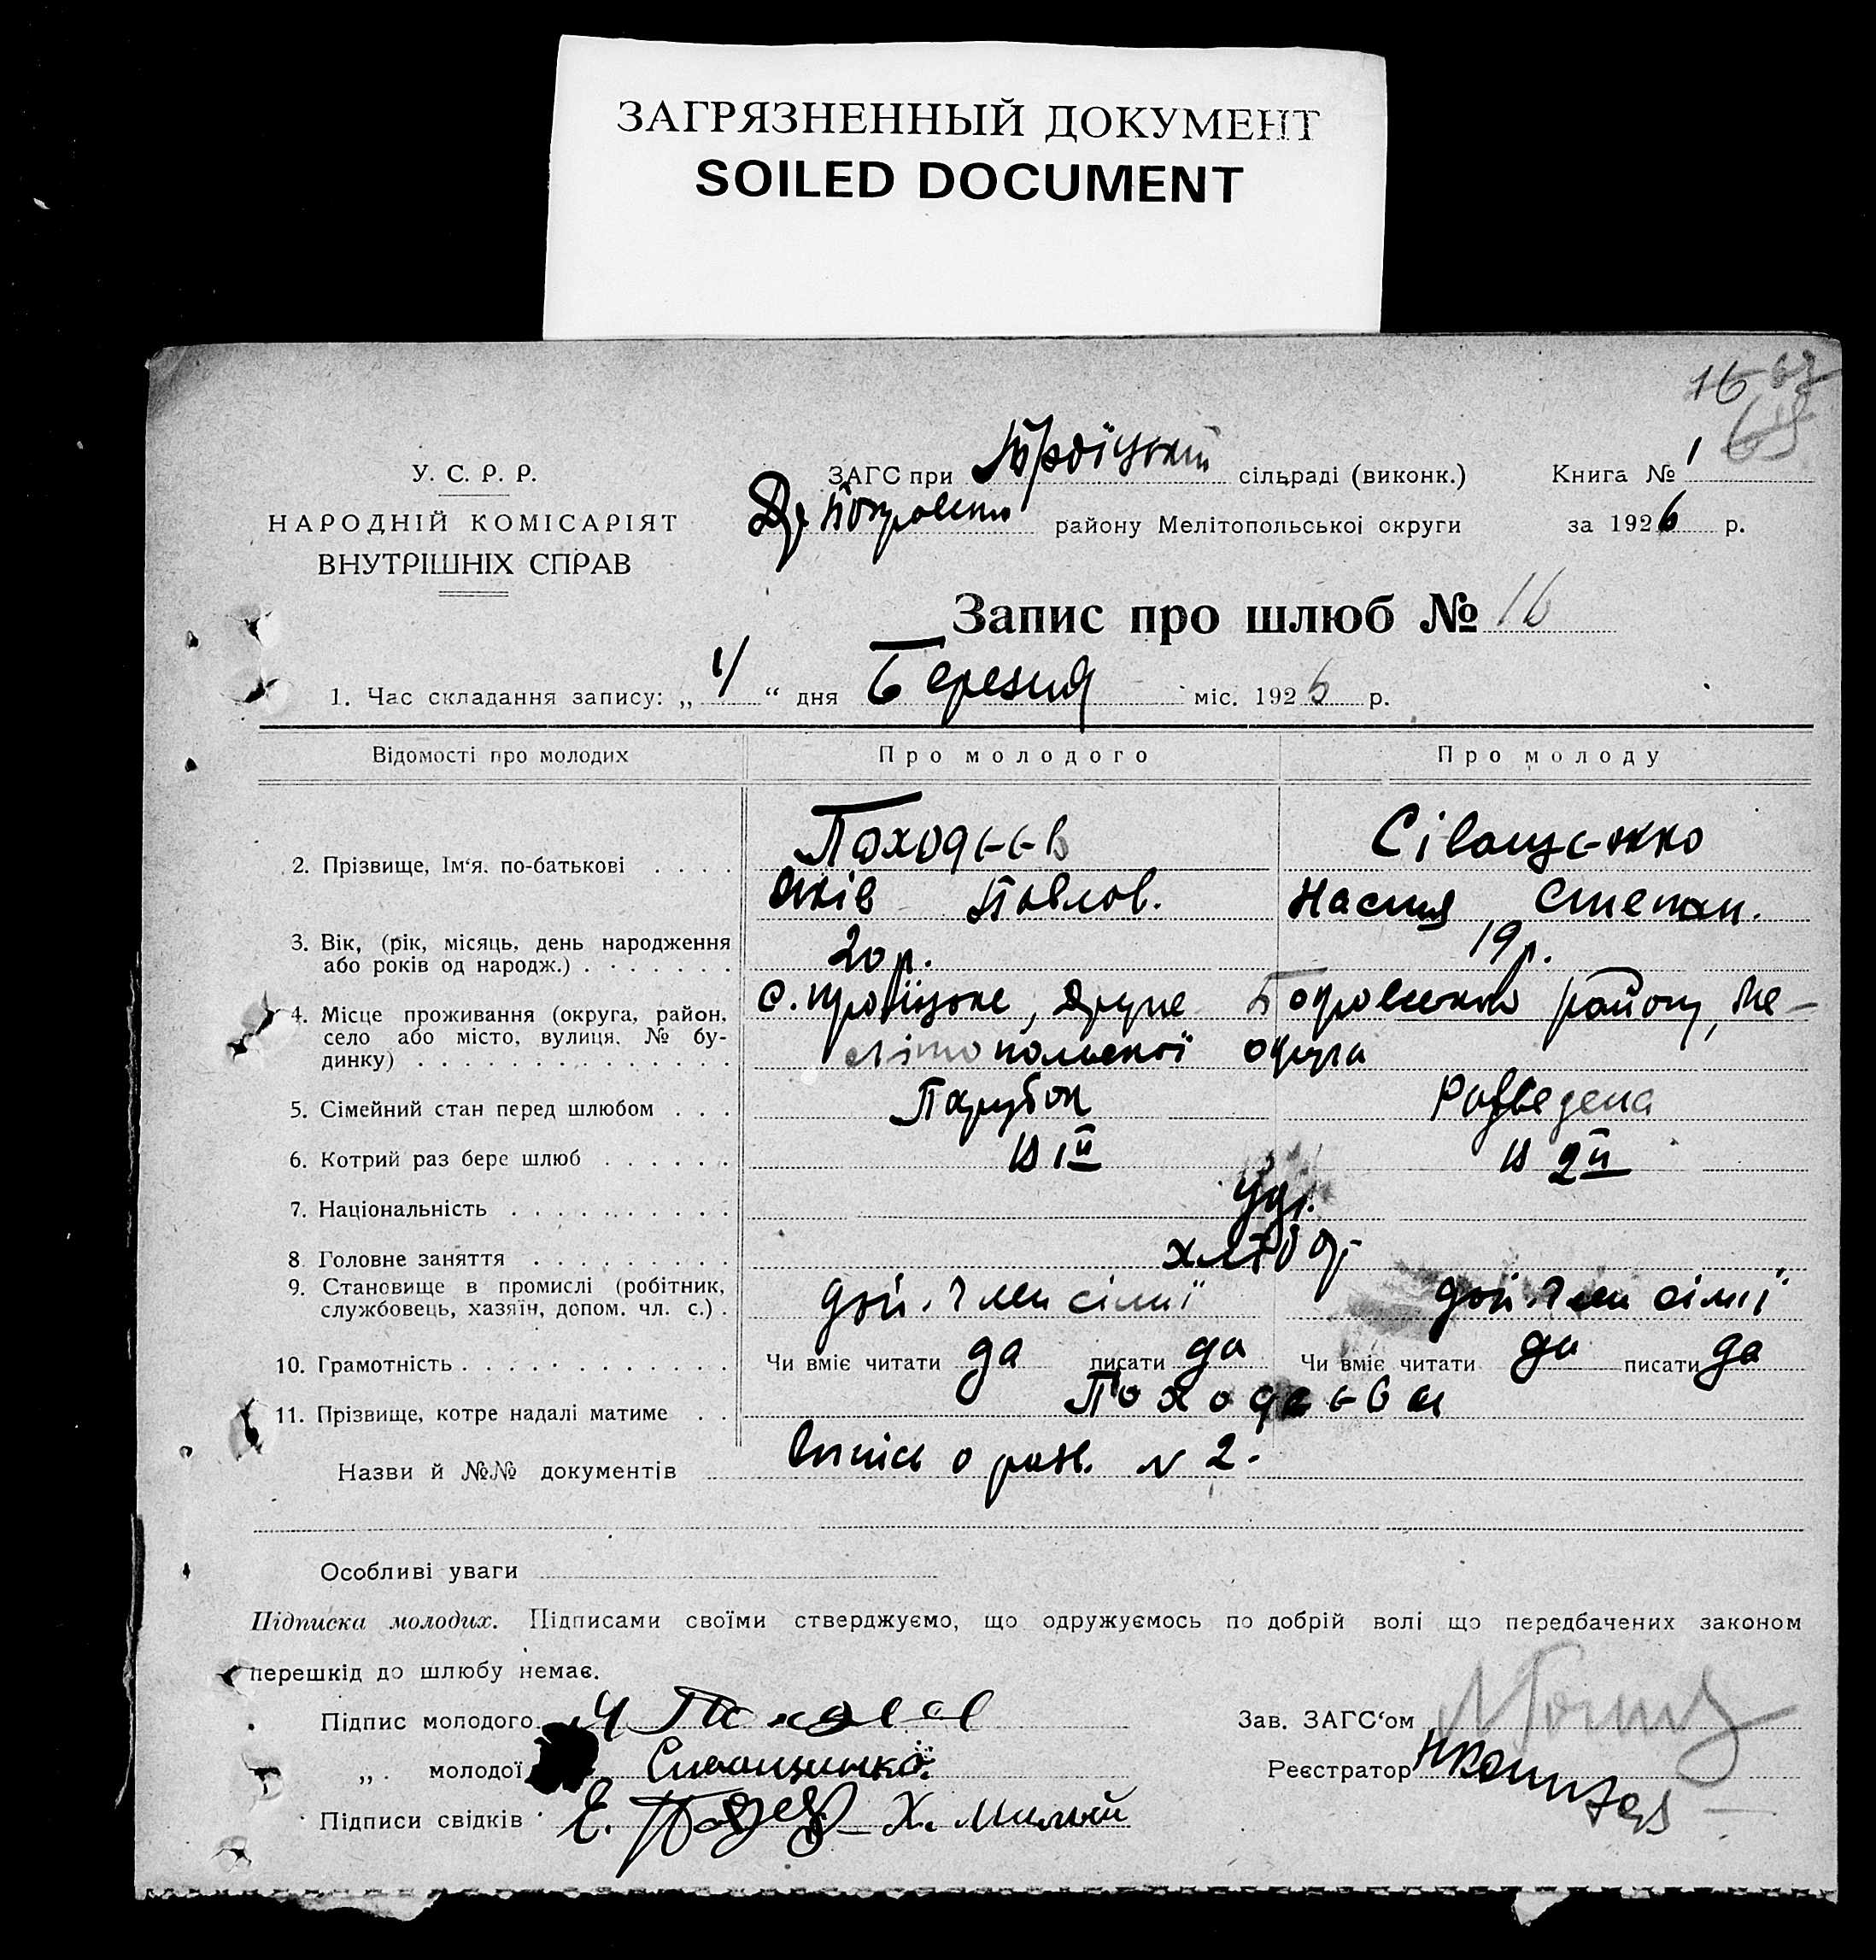 ЗАГРЯЗНЕННЫЙ ДОКУМЕНТ
SOILED DOCUMENT
16
У. С. Р. Р.
НАРОДНІЙ КОМІСАРІЯТ
ВНУТРІШНІХ СПРАВ
ЗАГС при Троїцькій сільраді (виконк.)
Книга № 1
району Мелітопольської округи
за 1926 р.
Запис про шлюб № 16
1. Час складання запису: „ 4 “ дня Березня міс. 1926 р.
Відомості про молодих Про молодого Про молоду
2. Прізвище, Ім‘я. по-батькові . . . . Походєєв Сіващєнко
Яків Павлов. Настя Степан.
3. Вік, (рік, місяць, день народження
або років од народж.) . . . . . . . 20 р. 19 р.
4. Місце проживання (округа, район,
село або місто, вулиця, № бу-
динку) . . . . . . . . . . . . . .
с. Троїцьке, Друге Покровського району, Ме-
літопольської округи
5. Сімейний стан перед шлюбом . . . Парубок Разведена
6. Котрий раз бере шлюб . . . . . . в 1й в 2й
7. Національність . . . . . . . . . . Укр.
8 Головне заняття . . . . . . . . . хлібор
9. Становище в промислі (робітник,
службовець, хазяїн, допом. чл. с.) . доп. член сімії доп. член сімії
10. Грамотність . . . . . . . . . . . . Чи вміє читати да писати да Чи вміє читати да писати да
11. Прізвище, котре надалі матиме . . Походєєви
Назви й №№ документів Випись о разв. № 2.
Особливі уваги
Підписка молодих. Підписами своїми стверджуємо, що одружуємось по добрій волі що передбачених законом
перешкід до шлюбу немає.
Підпис молодого
Зав. ЗАГС‘ом
„ . молодої Сиващинко
Реєстратор
Підписи свідків Х. Милый